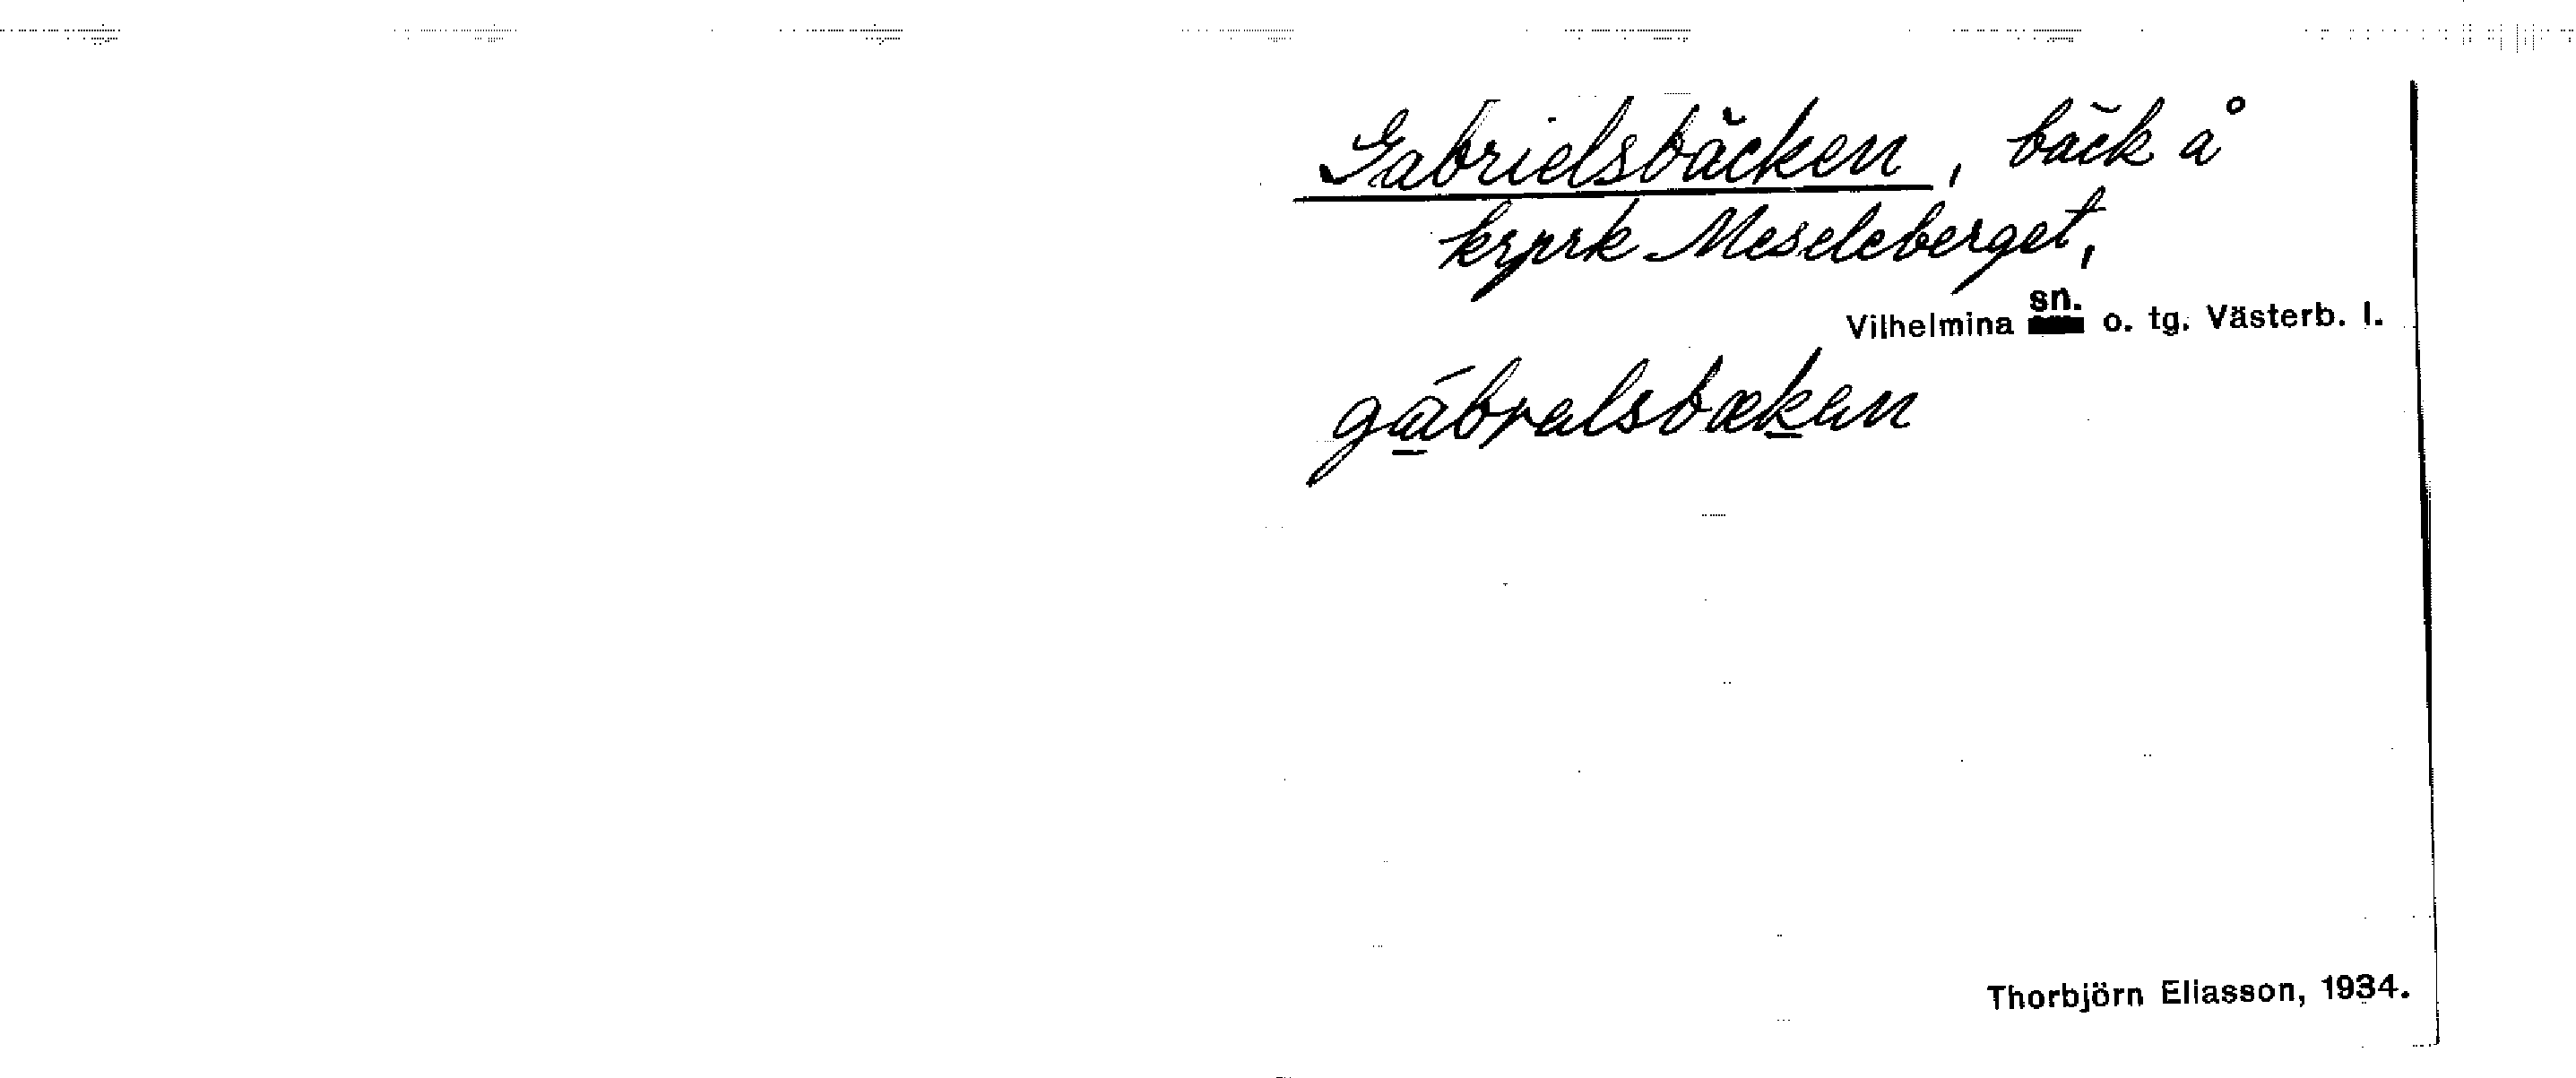 Gabrielsbäcken, bäck å
krprk Meseleberget,
Vilhelmina sn. o. tg. Västerb. l.
gábrəlsbækən
Thorbjörn Eliasson, 1934.